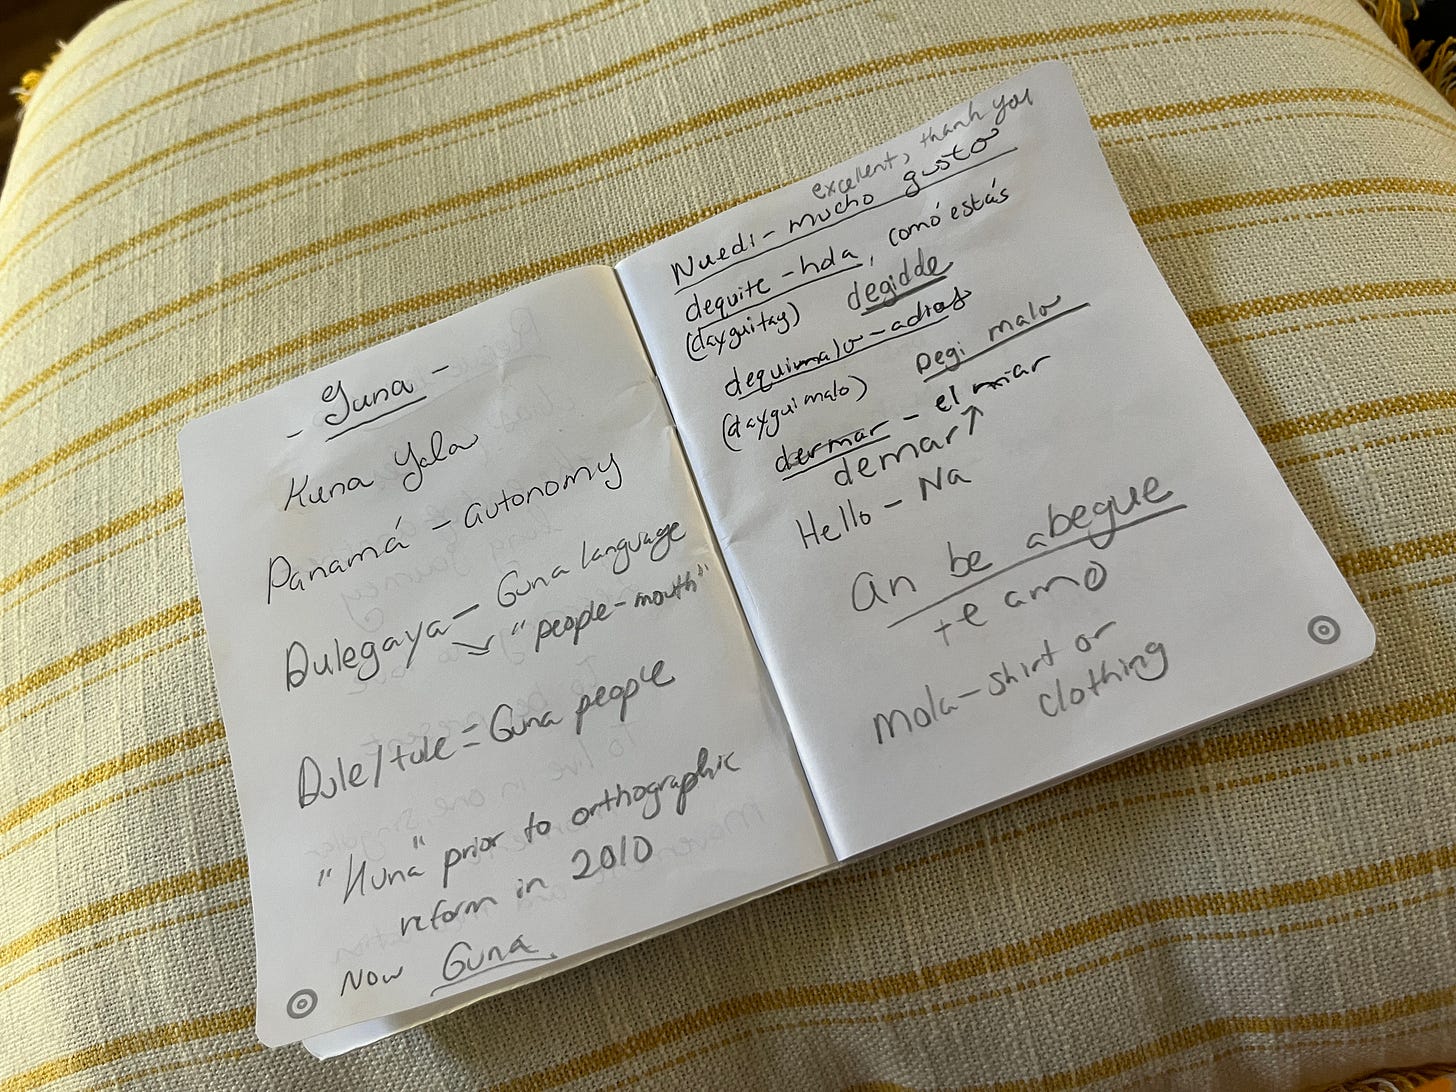 - Guna -
Kuna Yala
Panamá - autonomy
Dulegaya - Guna language
"people-mouth"
Dule/tule = Guna people
"Kuna" prior to orthographic
reform in 2010
Now Guna
excellent, thank you
Nuedi - mucho gusto
dequite - hola, comó estás
(dayguitay) degidde
dequimalo - adios
(dayguimalo) Degi malo
dermar - el mar
demar
Hello - Na
an be abegue
te amo
mola - shirt or
clothing